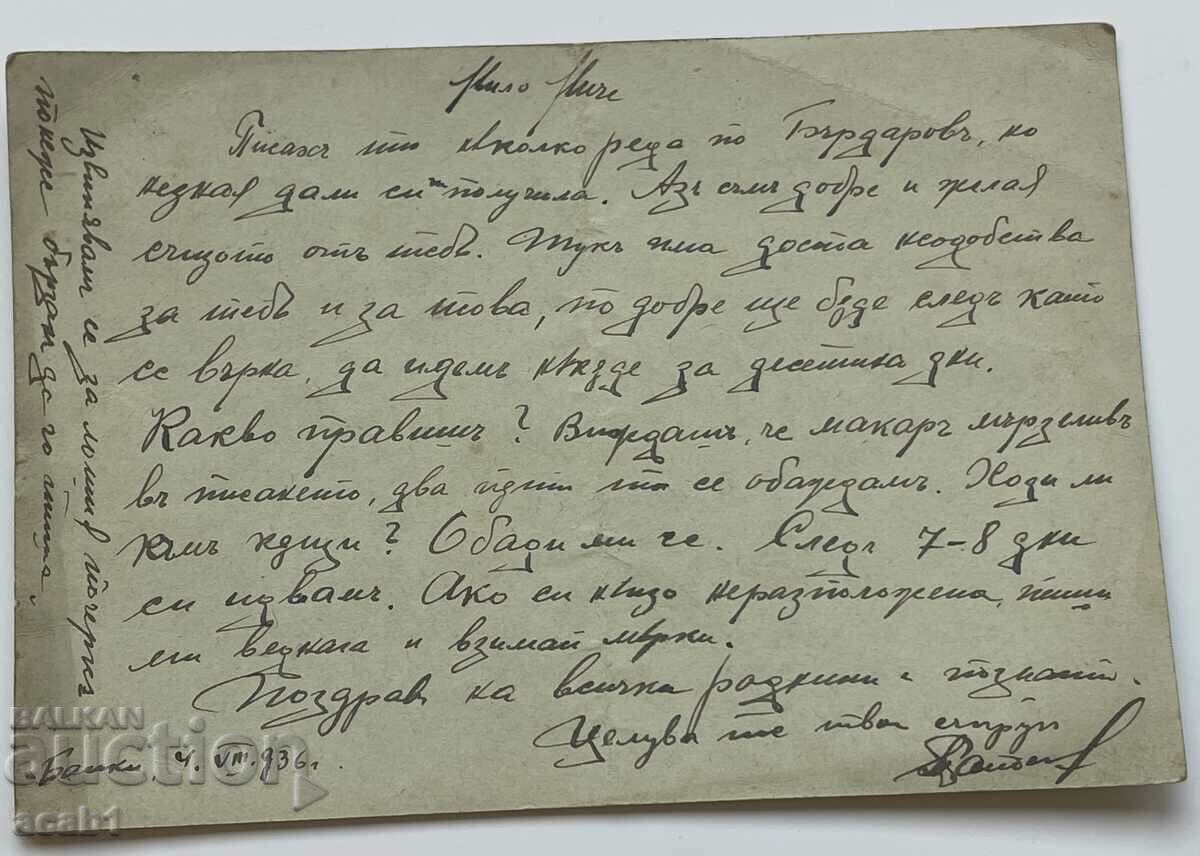 Мило Миче
Писахъ ти нѣколко реда по Бърдаровъ, но
незная дали си получила. Азъ съмъ добре и желая
същото отъ тебъ. Тукъ има доста неодобства
за тебъ и за това, по добре ще бѫде следъ като
се върна, да идемъ нѣкѫде за десетина дни.
Какво правишъ? Виждашъ, че макаръ мързеливъ
въ писането, два пѫти се обаждамъ. Ходи ли
къмъ кѫщи? Обади ми се. Следъ 7-8 дни
си идвамъ. Ако си нѣщо неразположена, пиши
ми веднага и взимай мѣрки.
Поздрав на всички роднини и познати.
Целува те твоя съпруг
Банки, 4. VIII. 936 г.
Извинявам се за лошия почеркъ
понеже бързам да го пиша.
BALKAN
auction
acab1